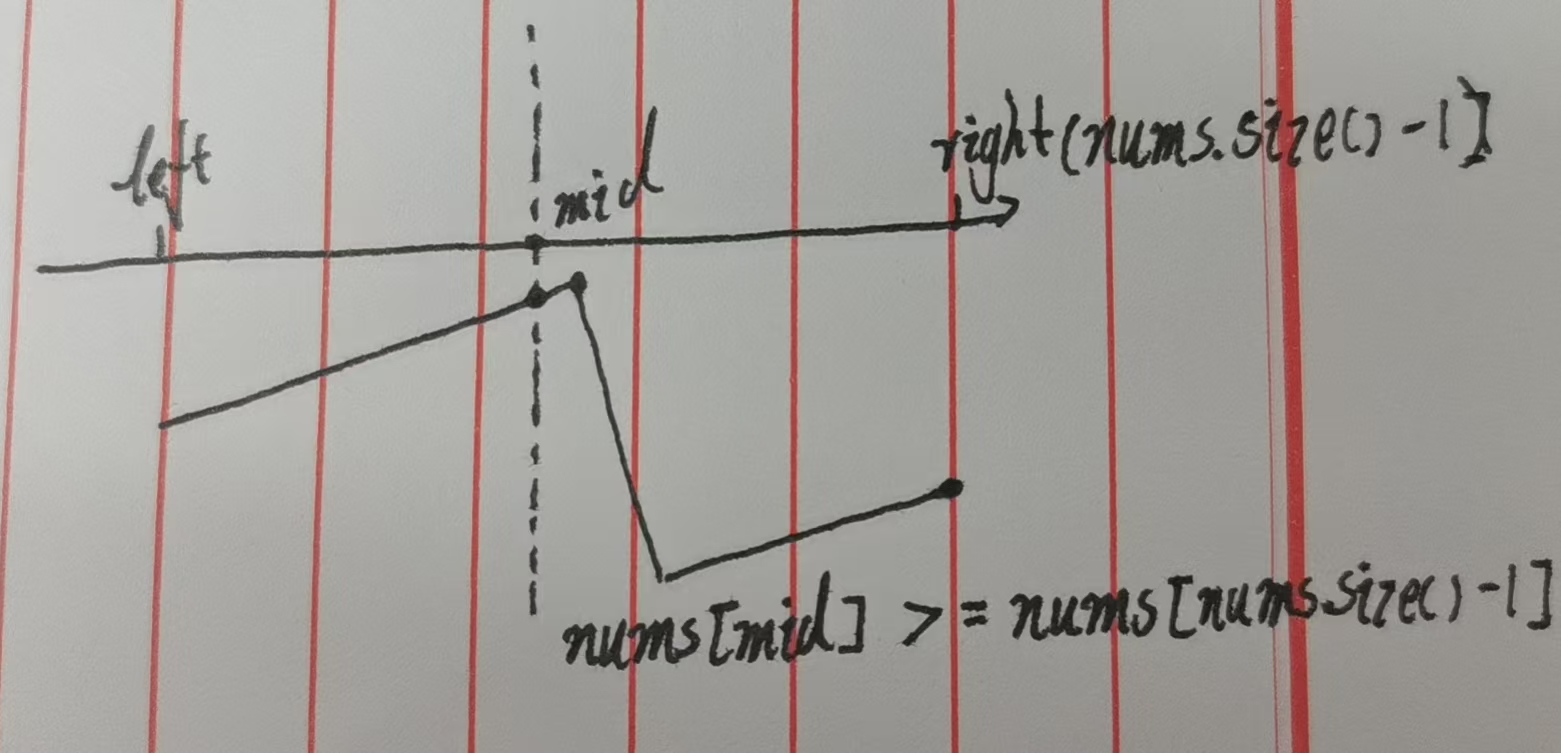 left
mid
right(nums.size()-1]
nums[mid] >= nums[nums.size()-1]